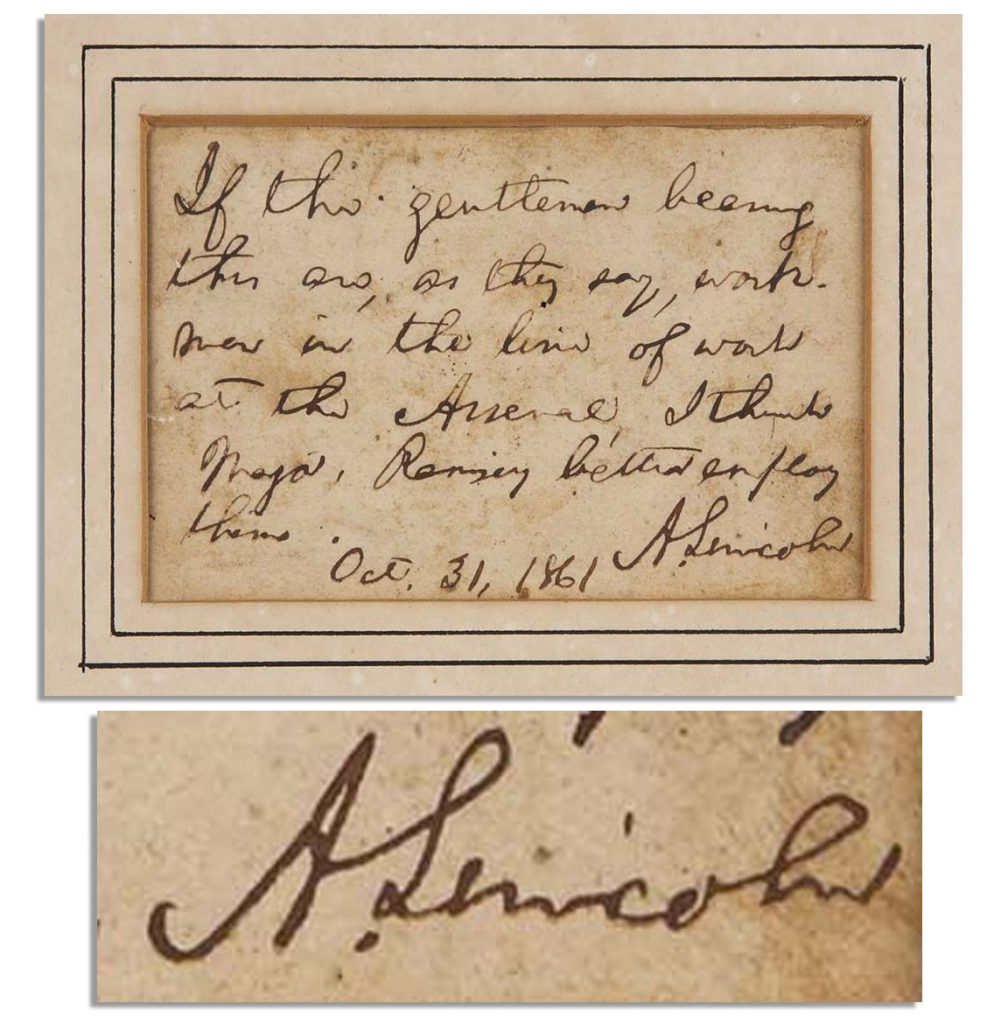 If the gentlemen bearing
this are, as they say, work-
men in the line of work
at the Arsenal, I think
Major Ramsey better employ
them.
Oct. 31, 1861 A. Lincoln
A. Lincoln